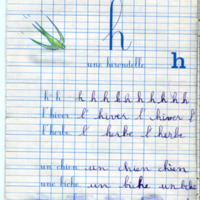 h
une hirondelle h
h h h h h h h h h h h
l'hiver l' hiver l' hiver l'
l'herbe l' herbe l' herbe
un chien un chien chien
une biche un biche un biche